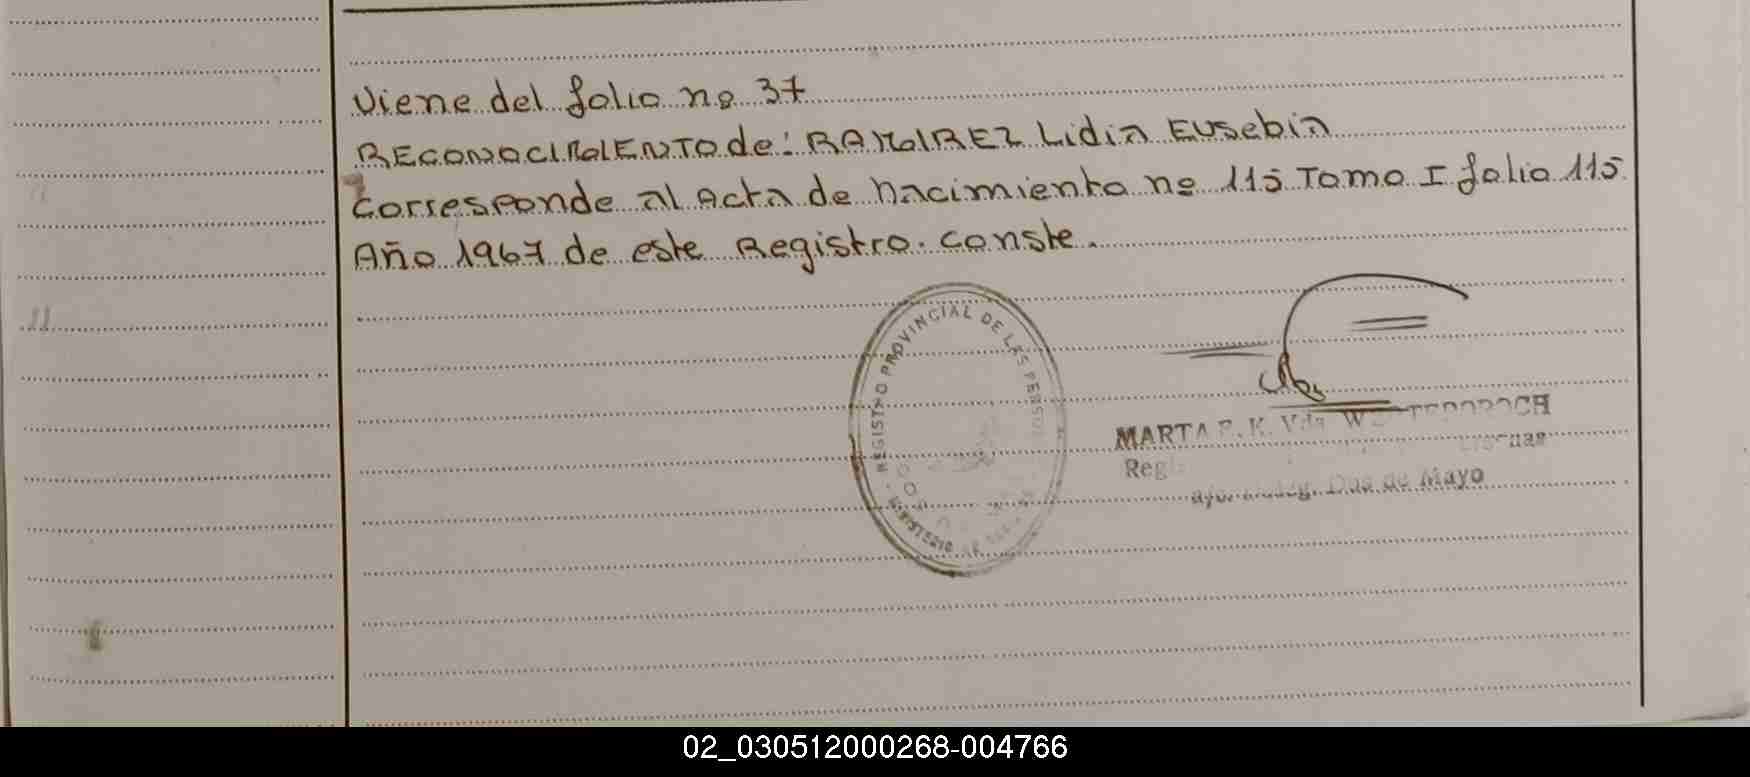 Viene del folio nº 37
RECONOCIMIENTO de: RAMIREZ Lidia Eusebia
Corresponde al Acta de nacimiento nº 115 Tomo I folio 115
Año 1967 de este Registro. conste.
REGISTRO PROVINCIAL DE LAS PERSO
MINISTERIO DE
MARTA E. K. Vda
Reg
Dos de Mayo
02_030512000268-004766